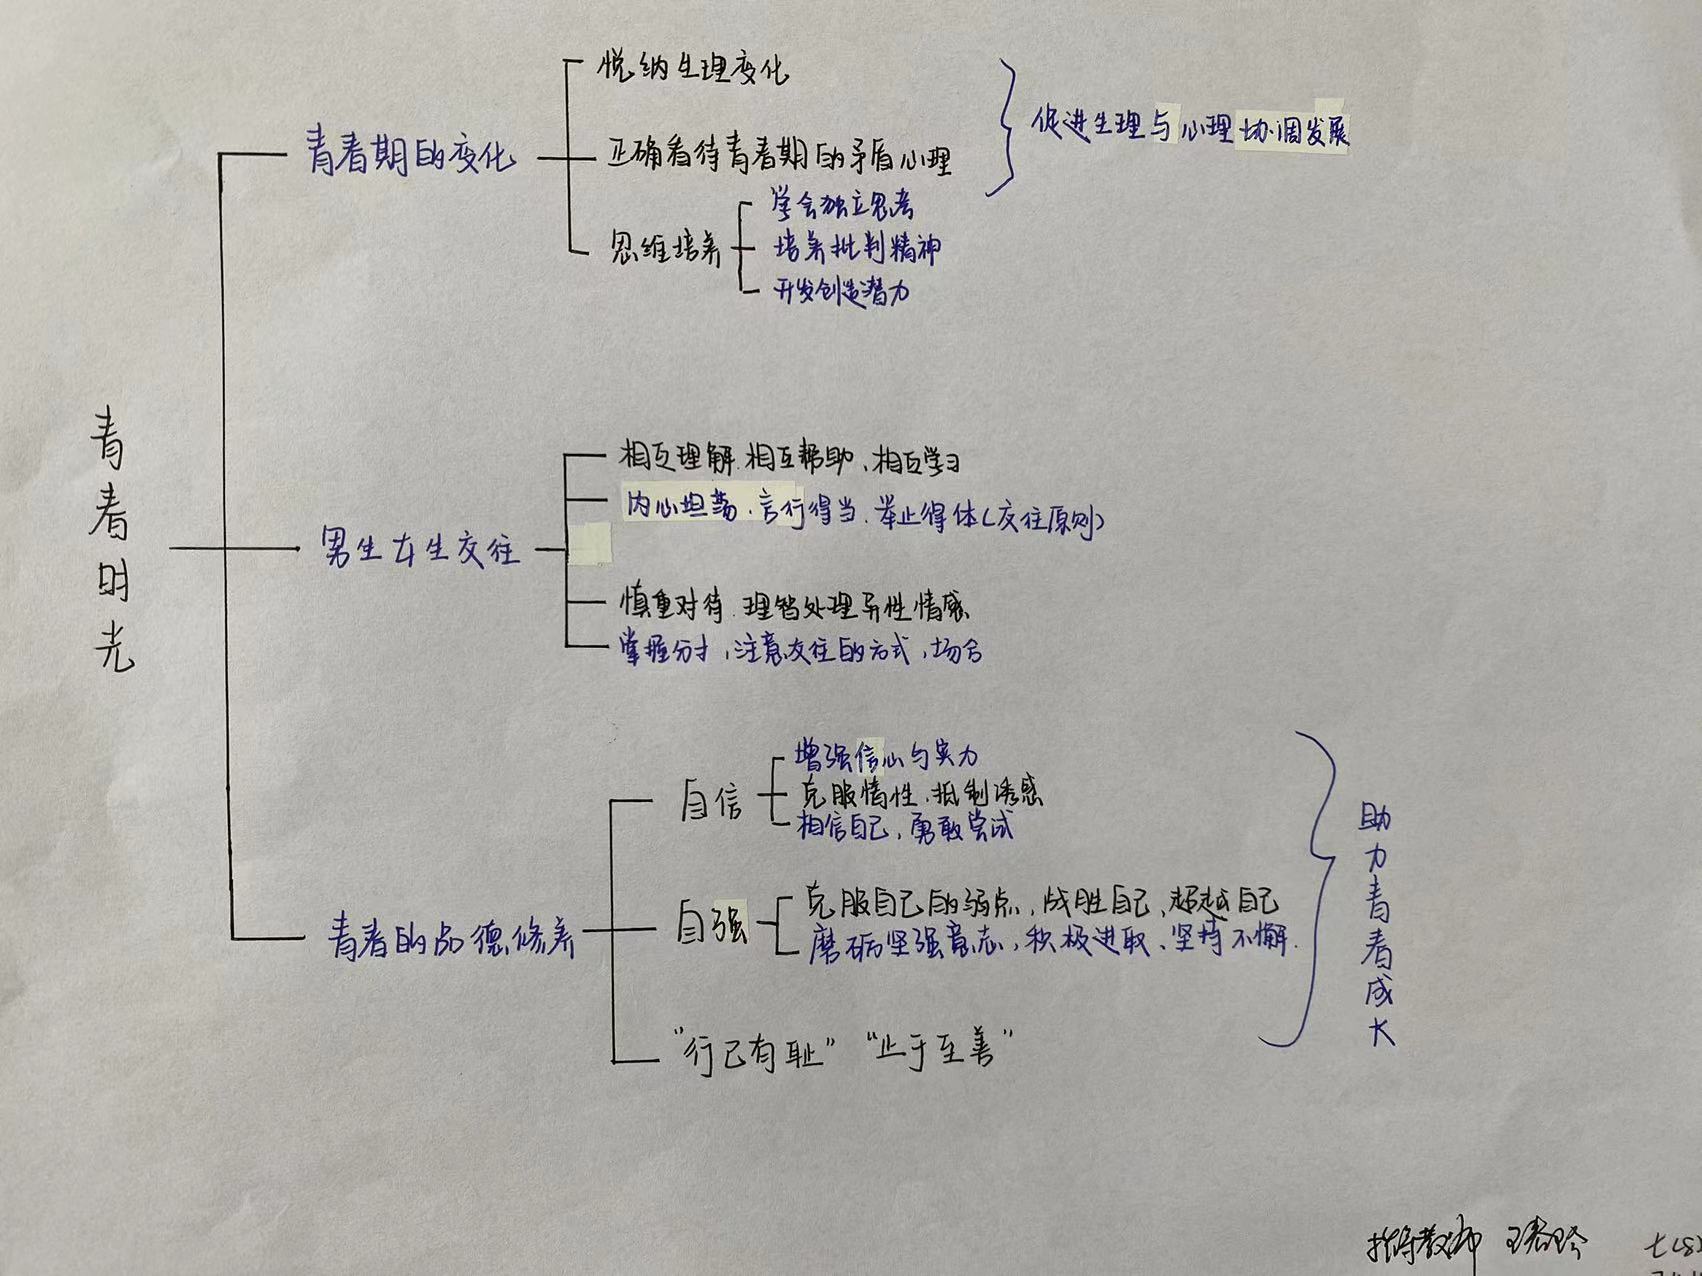 青春时光
青春期的变化
悦纳生理变化
正确看待青春期的矛盾心理
促进生理与心理协调发展
思维培养
学会独立思考
培养批判精神
开发创造潜力
男生女生交往
相互理解、相互帮助、相互学习
内心坦荡、言行得当、举止得体(交往原则)
慎重对待、理智处理异性情感
掌握分寸,注意交往的方式,场合
青春的品德修养
自信
增强信心与实力
克服惰性、抵制诱惑
相信自己,勇敢尝试
自强
克服自己的弱点,战胜自己、超越自己
磨砺坚强意志,积极进取、坚持不懈.
"行己有耻" "止于至善"
助力青春成长
指导教师 王
七(8)